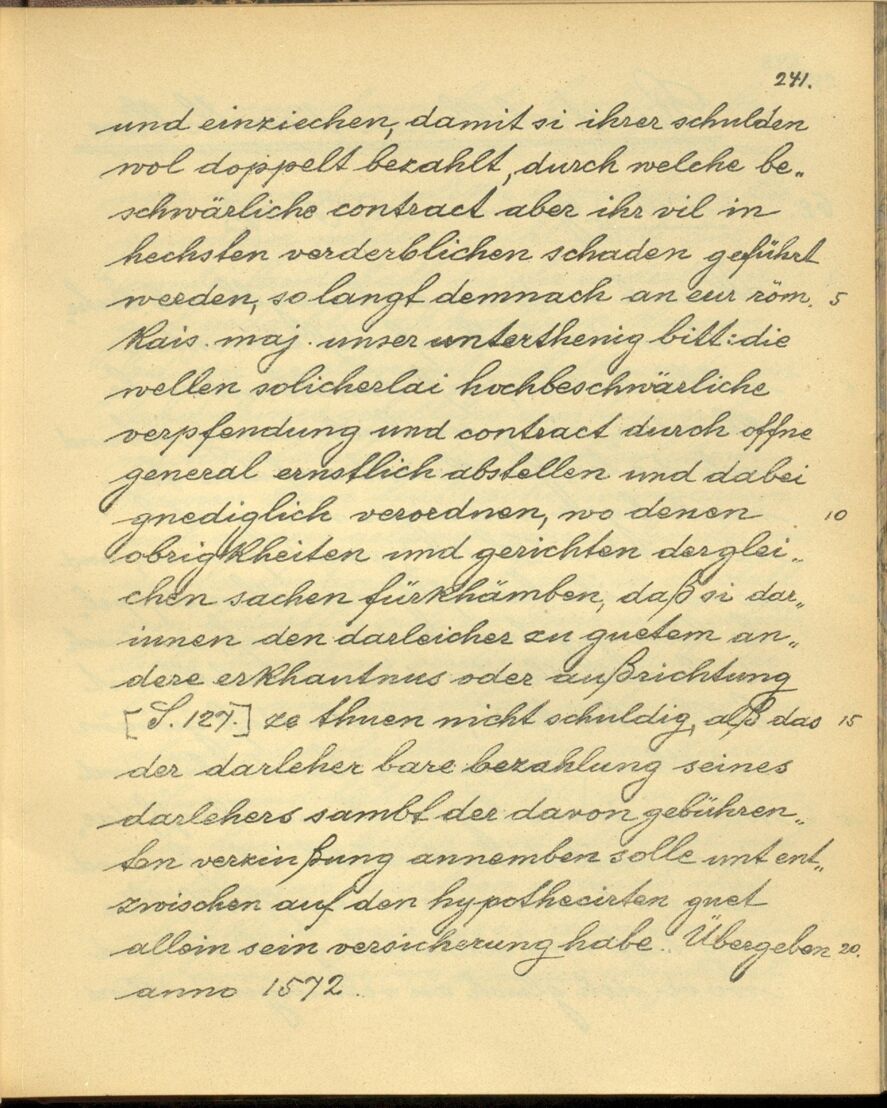 241.
und einziechen, damit si ihrer schulden
wol doppelt bezahlt, durch welche be„
schwärliche contract aber ihr vil in
hechsten verderblichen schaden geführt
werden, so langt demnach an eur röm. 5
kais. maj. unser unterthenig bitt: die
wellen solicherlai hochbeschwärliche
verpfendung und contract durch offne
general ernstlich abstellen und dabei
gnediglich verordnen, wo denen 10
obrigkheiten und gerichten derglei„
chen sachen fürkhämben, daß si dar„
innen den darleicher zu guetem an„
dere erkhantnus oder außrichtung
[S. 127.] ze thuen nicht schuldig, alß das 15
der darleher bare bezahlung seines
darlehers sambt der davon gebühren„
ten verzinßung annemben solle unt ent„
zwischen auf den hypothecirten guet
allein sein versicherung habe. Übergeben 20.
anno 1572.